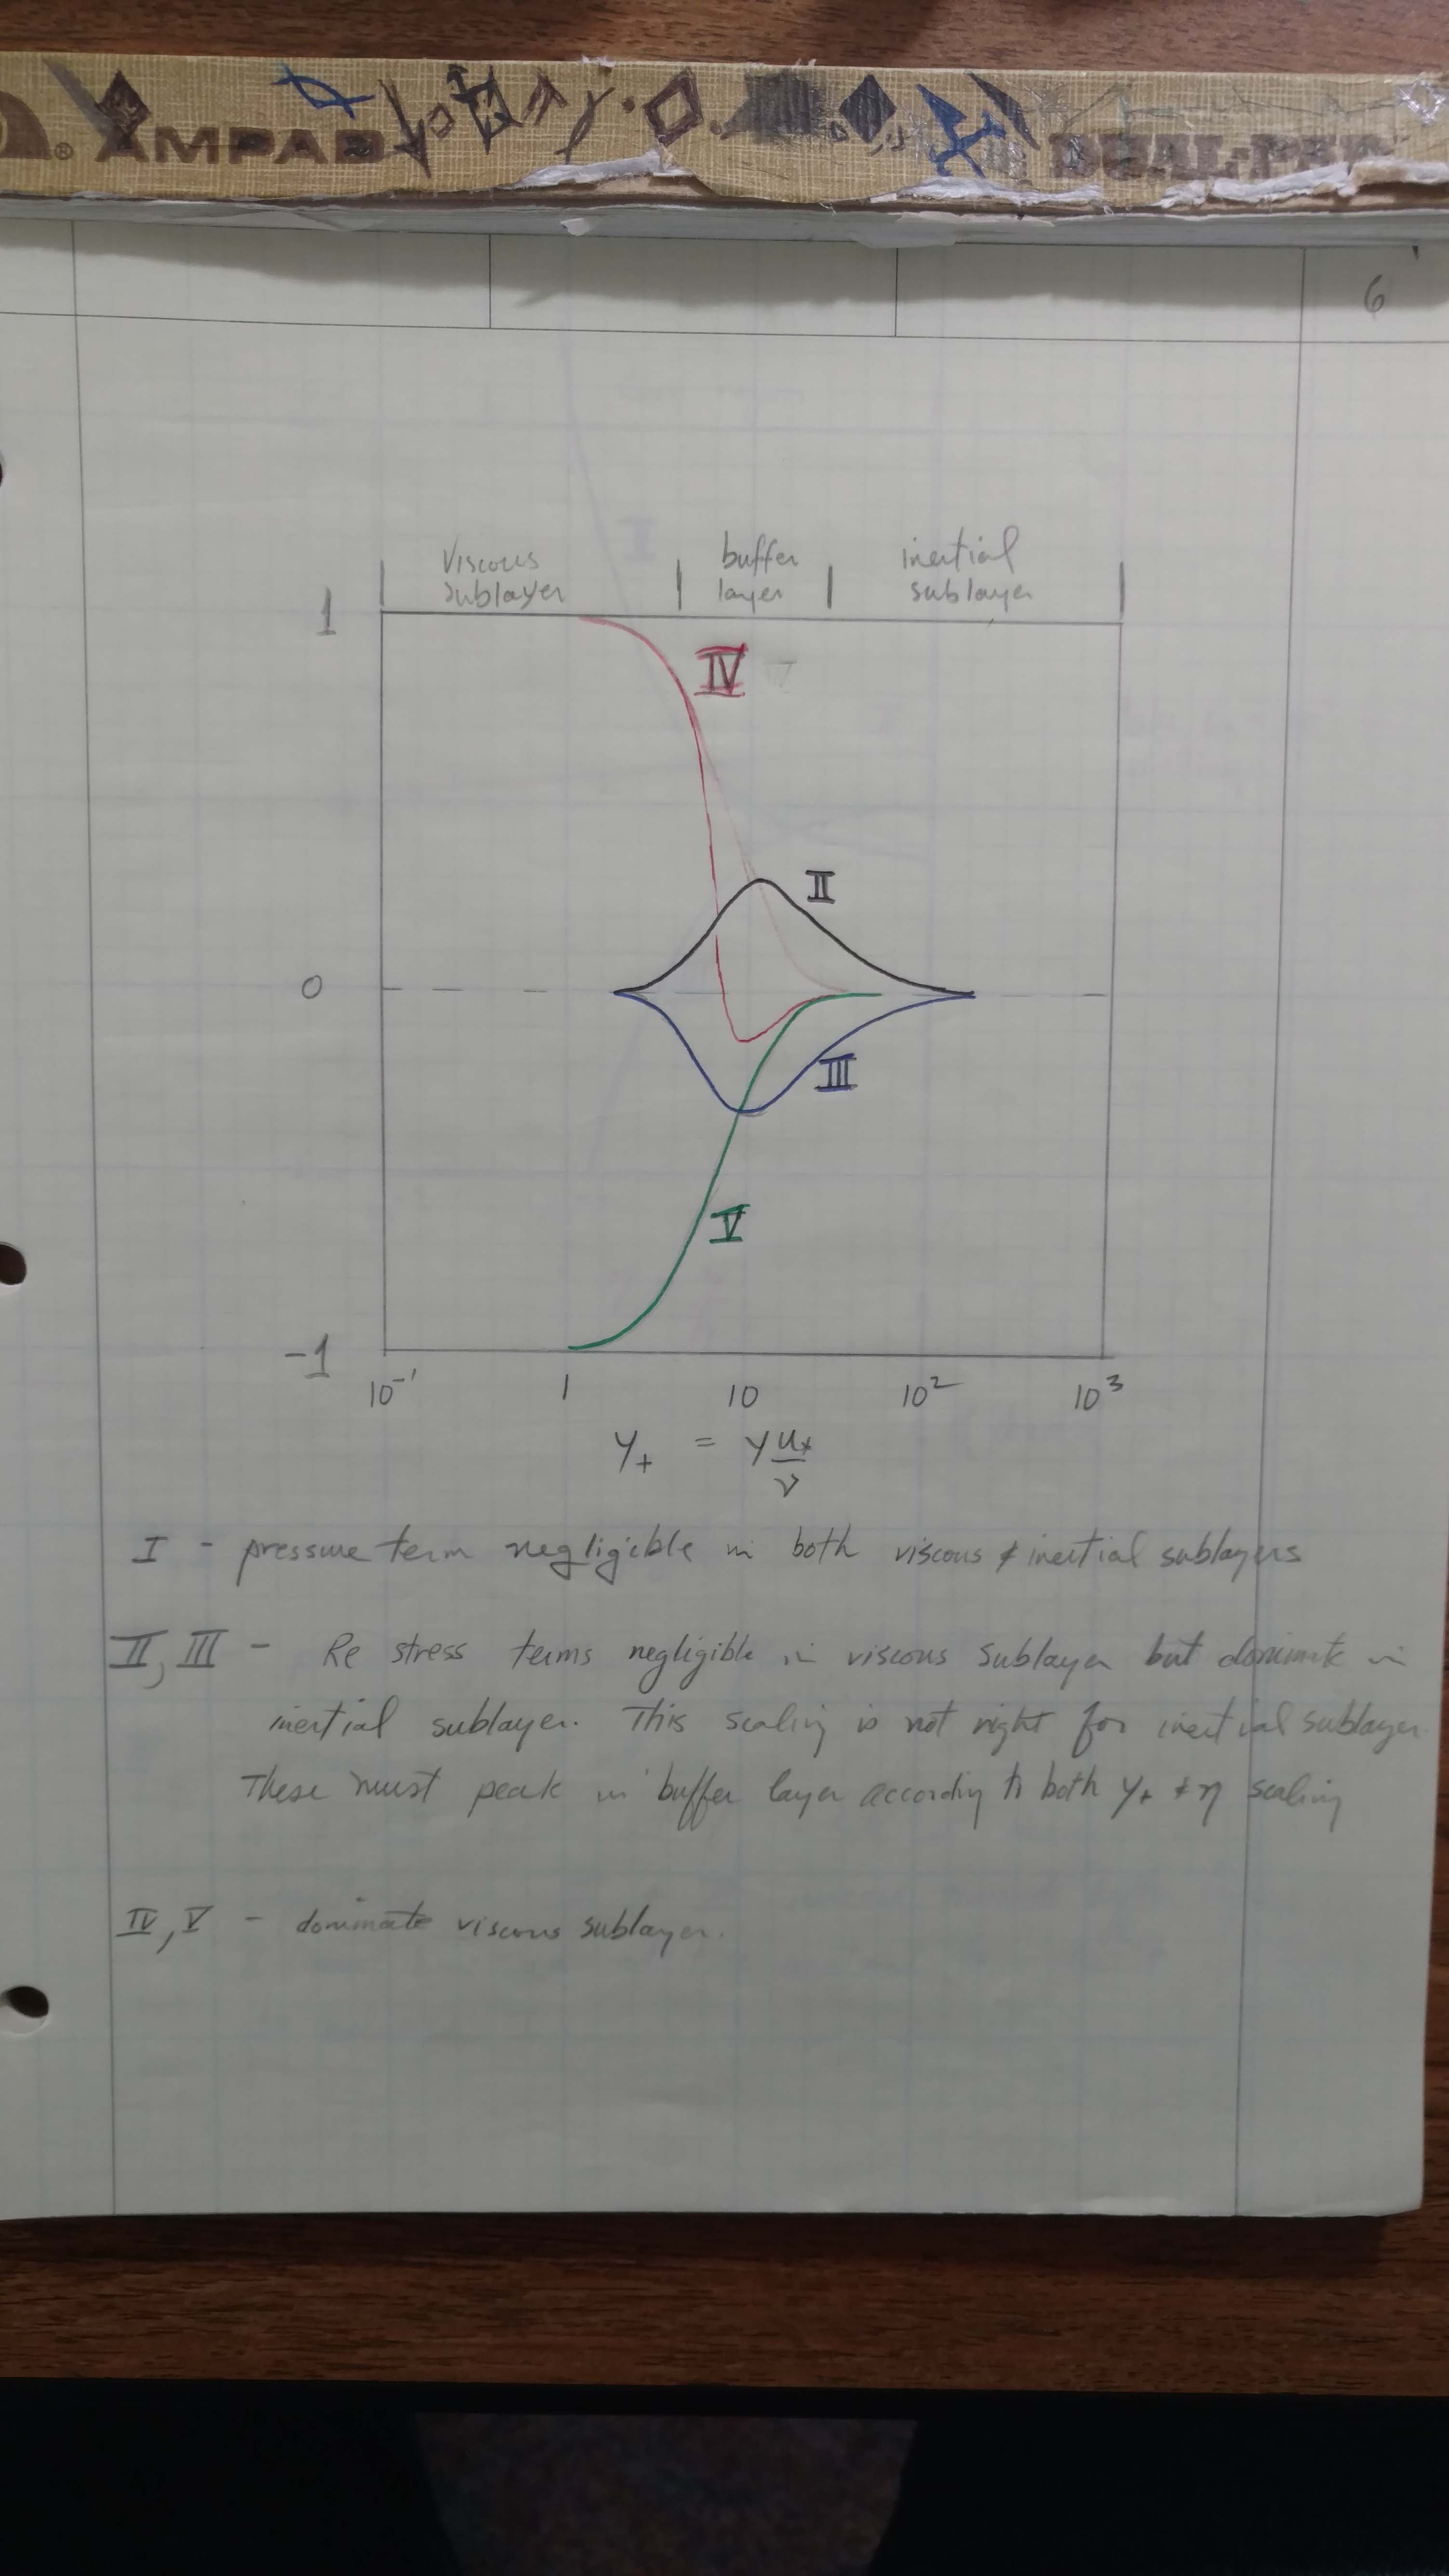 AMPAD
DUAL-PAD
6
Viscous
sublayer
buffer
layer
inertial
sublayer
1
IV
II
0
III
V
-1
10⁻¹ 1 10 10² 10³
y₊ = y u*/ν
I - pressure term negligible in both viscous & inertial sublayers
II, III - Re stress terms negligible in viscous sublayer but dominate in
inertial sublayer. This scaling is not right for inertial sublayer.
These must peak in buffer layer according to both y₊ & η scaling
IV, V - dominate viscous sublayer.